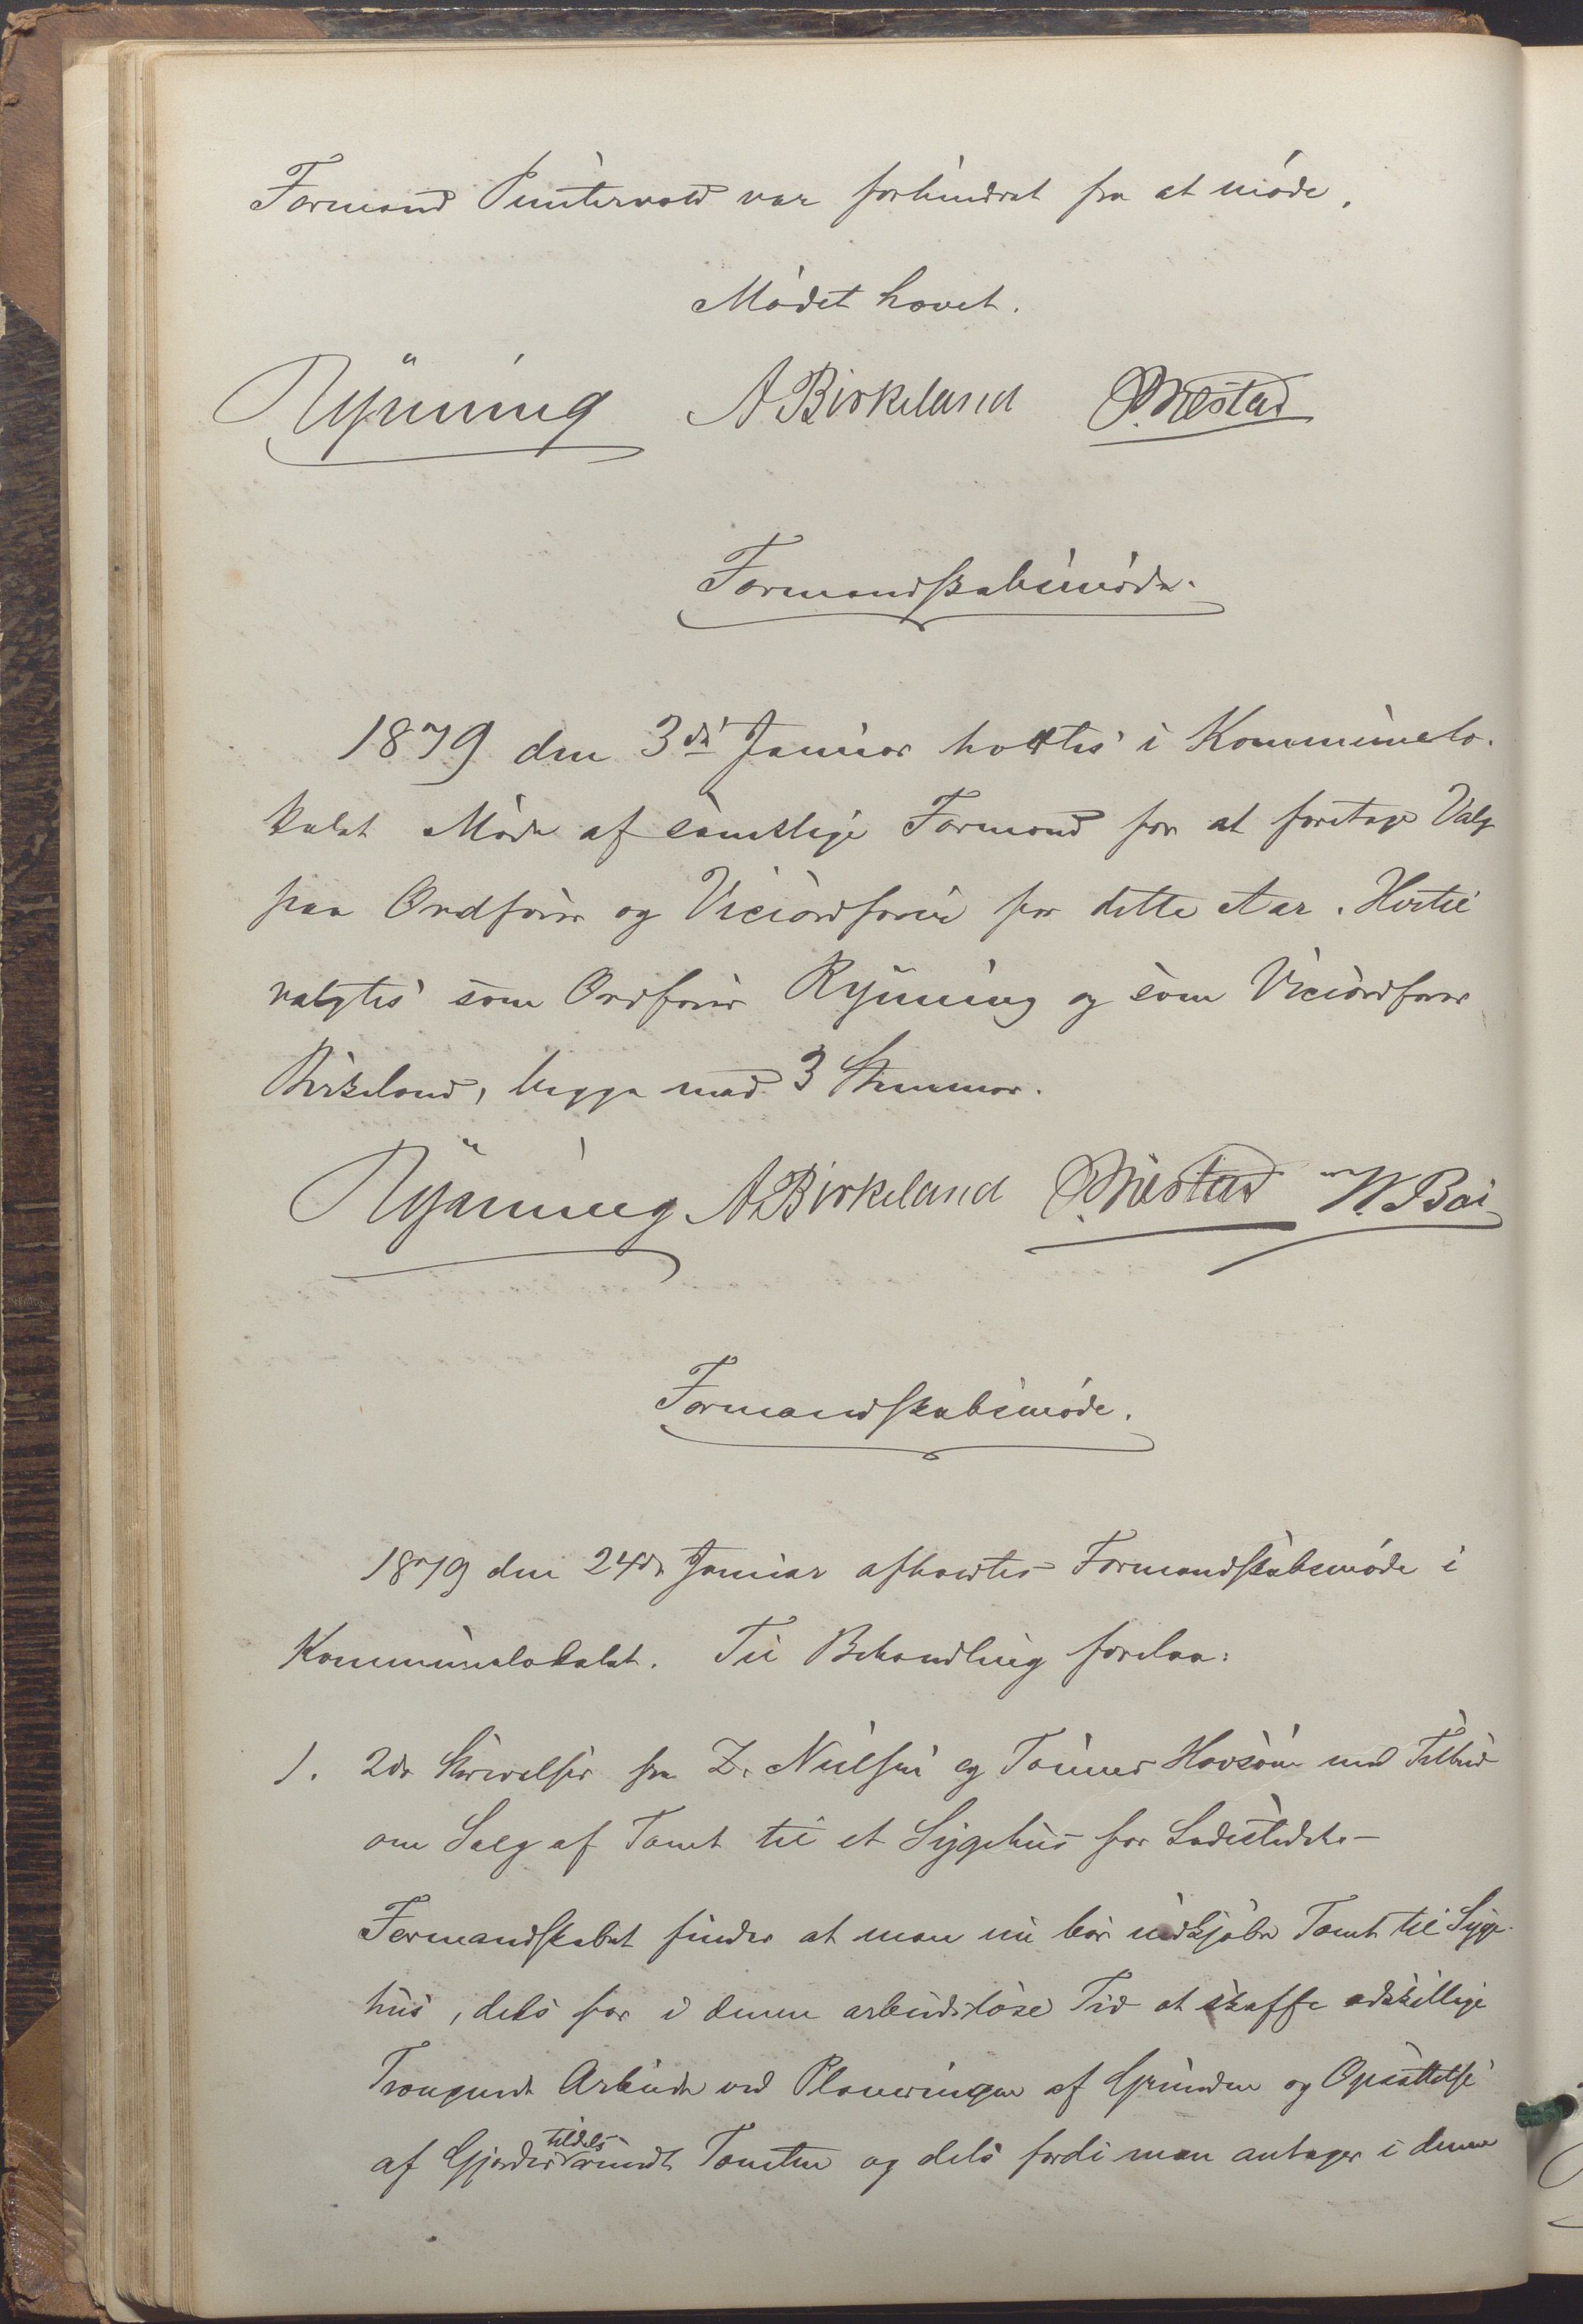 Formand Puntervold var forhindret fra at møde.
Mødet hævet.
Rynning A Birkeland O. Mestad
Formandskabsmøde.
1879 den 3die Januar holdtes i Kommunelo-
kalet Møde af samtlige Formænd for at foretage Valg
paa Ordfører og Viceordfører for dette Aar. Hertil
valgtes som Ordfører Rynning og som Viceordfører
Birkeland, begge med 3 Stemmer.
Rynning A Birkeland O. Mestad W. Boi
Formandskabsmøde.
1879 den 24de Januar afholdtes Formandskabsmøde i
Kommunelokalet. Til Behandling forelaa:
1. 2de Skrivelser fra Z. Nielsen og Tønnes Hovsøm med Tilbud
om Salg af Tomt til et Sygehus for Ladestedet.-
Formandskabet finder at man nu bør indkjøbe Tomt til Syge-
hus, dels for i denne arbeidsløse Tid at skaffe adskillige
Trængende Arbeide ved Planeringen af Grunden og Opsættelse
af Gjerder tildels rundt Tomten og dels fordi man antager i denne